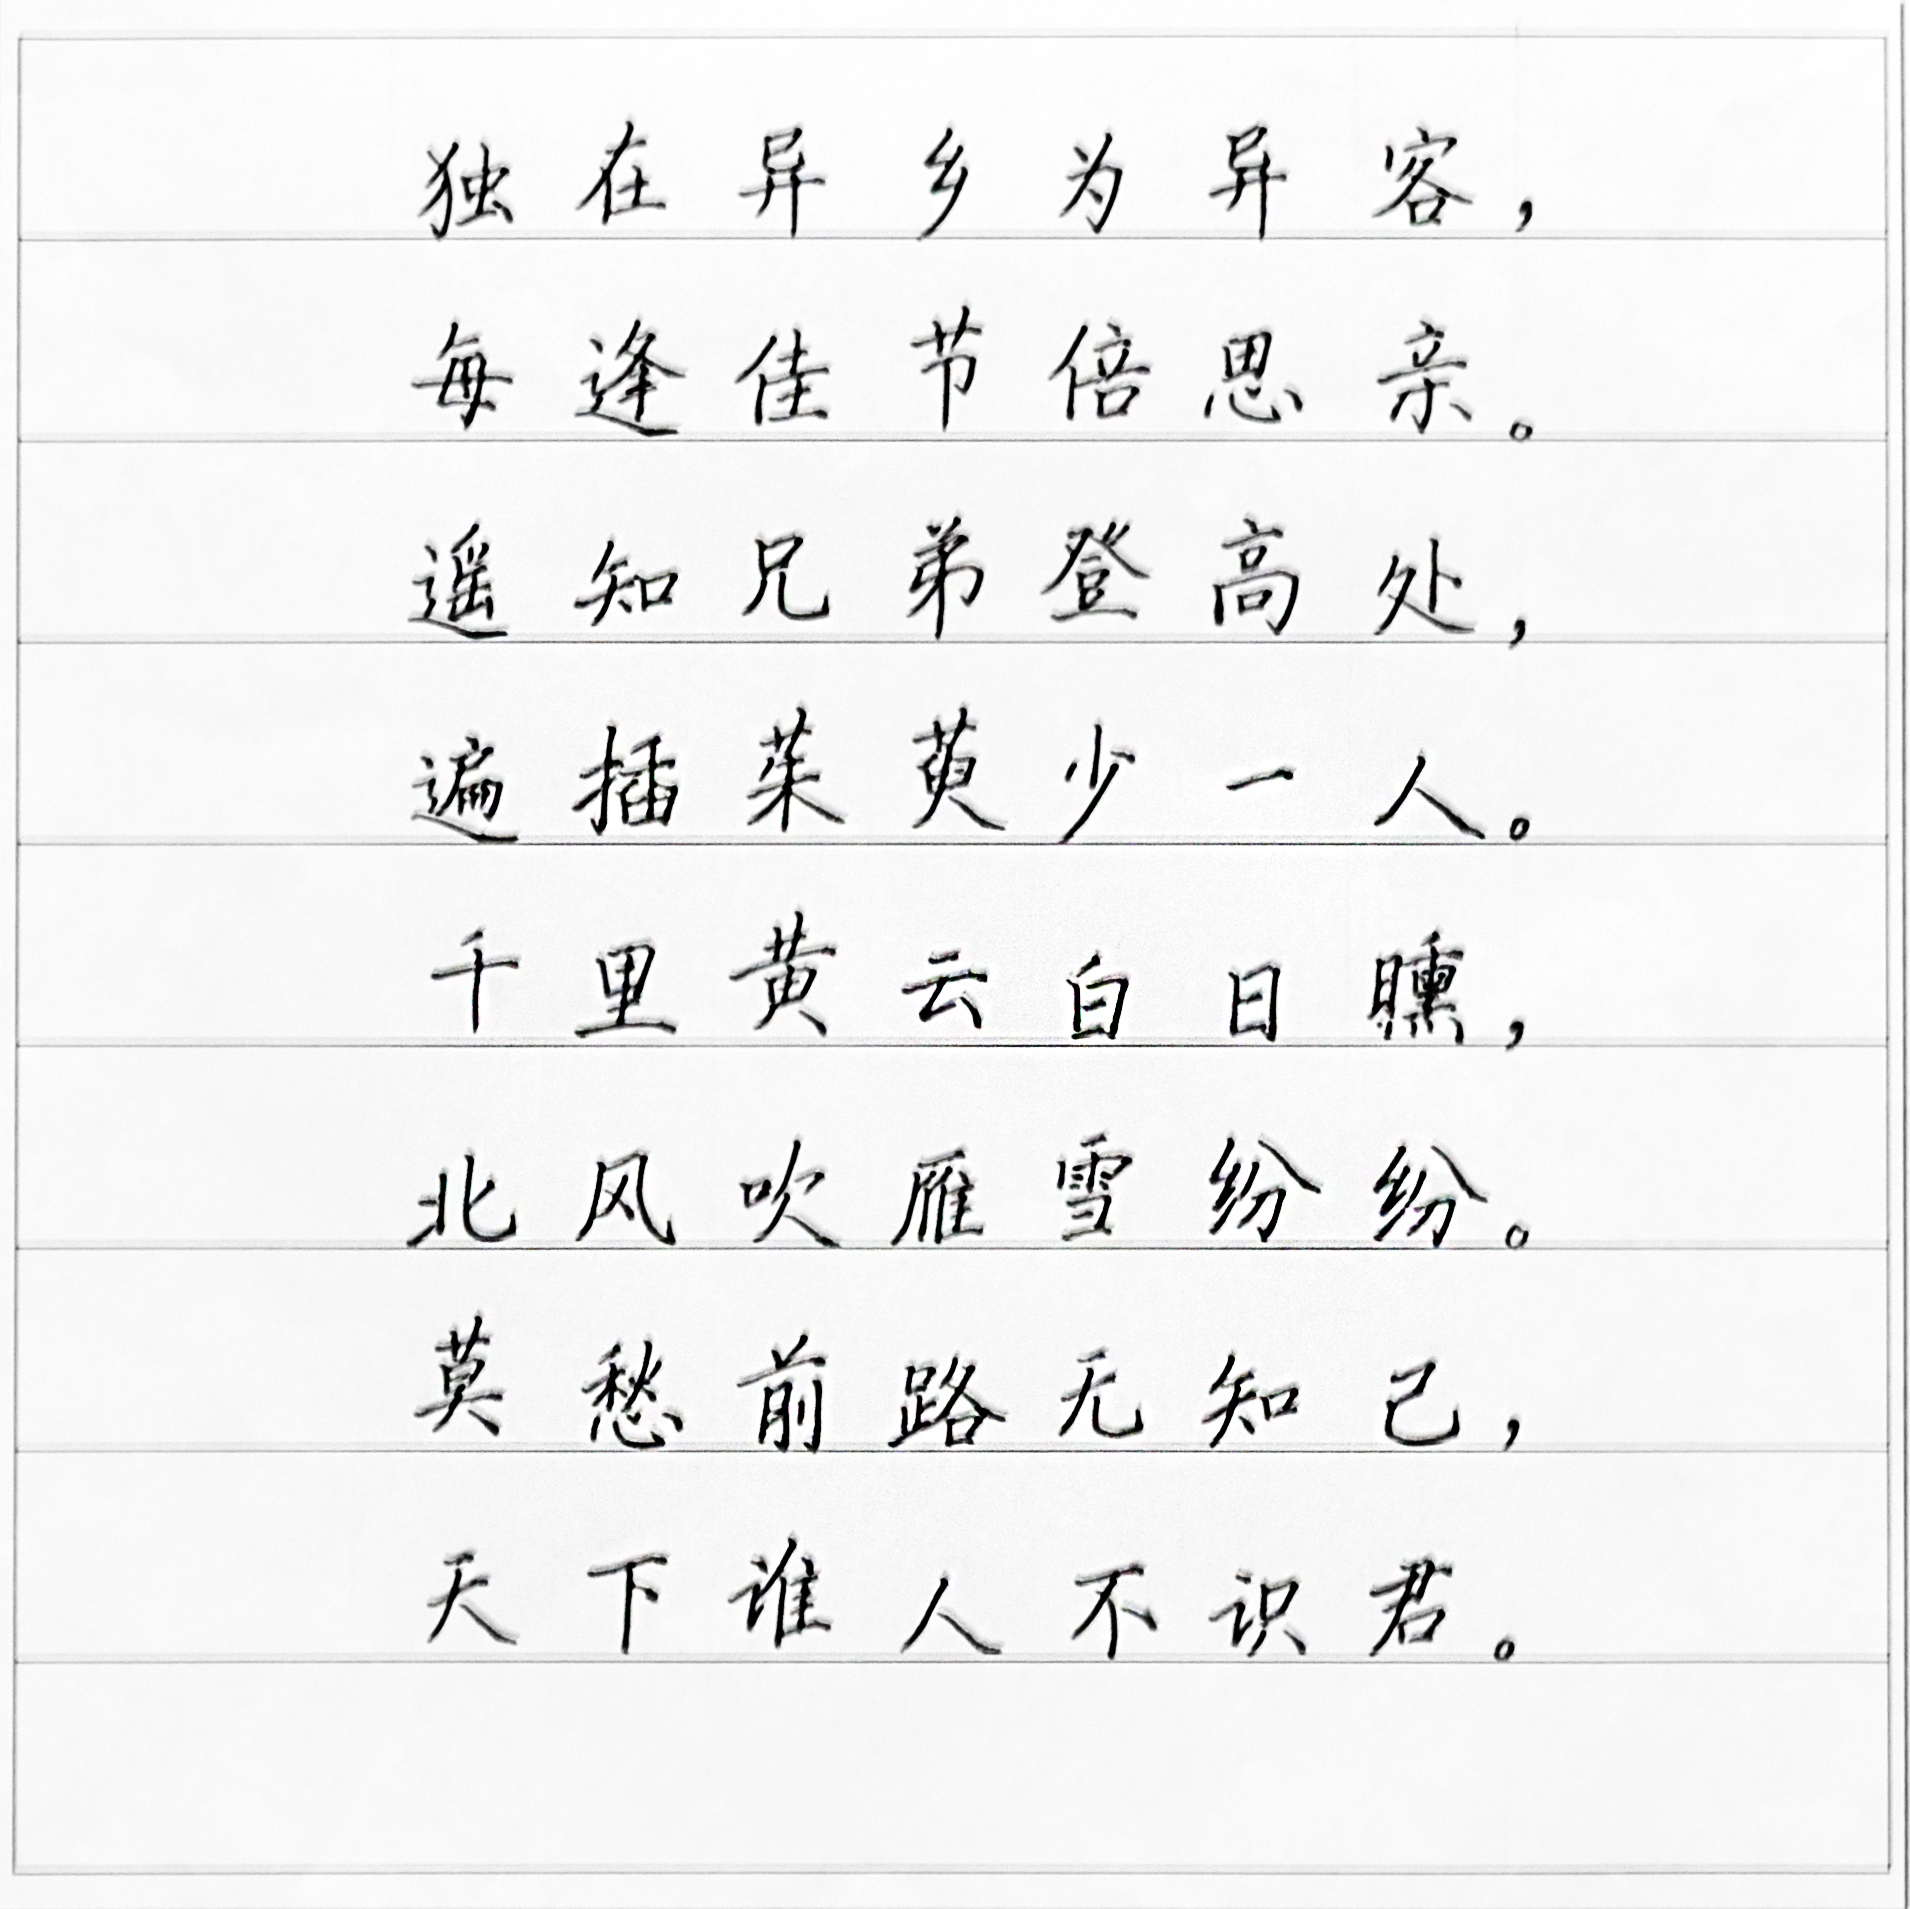 独在异乡为异客，
每逢佳节倍思亲。
遥知兄弟登高处，
遍插茱萸少一人。
千里黄云白日曛，
北风吹雁雪纷纷。
莫愁前路无知己，
天下谁人不识君。